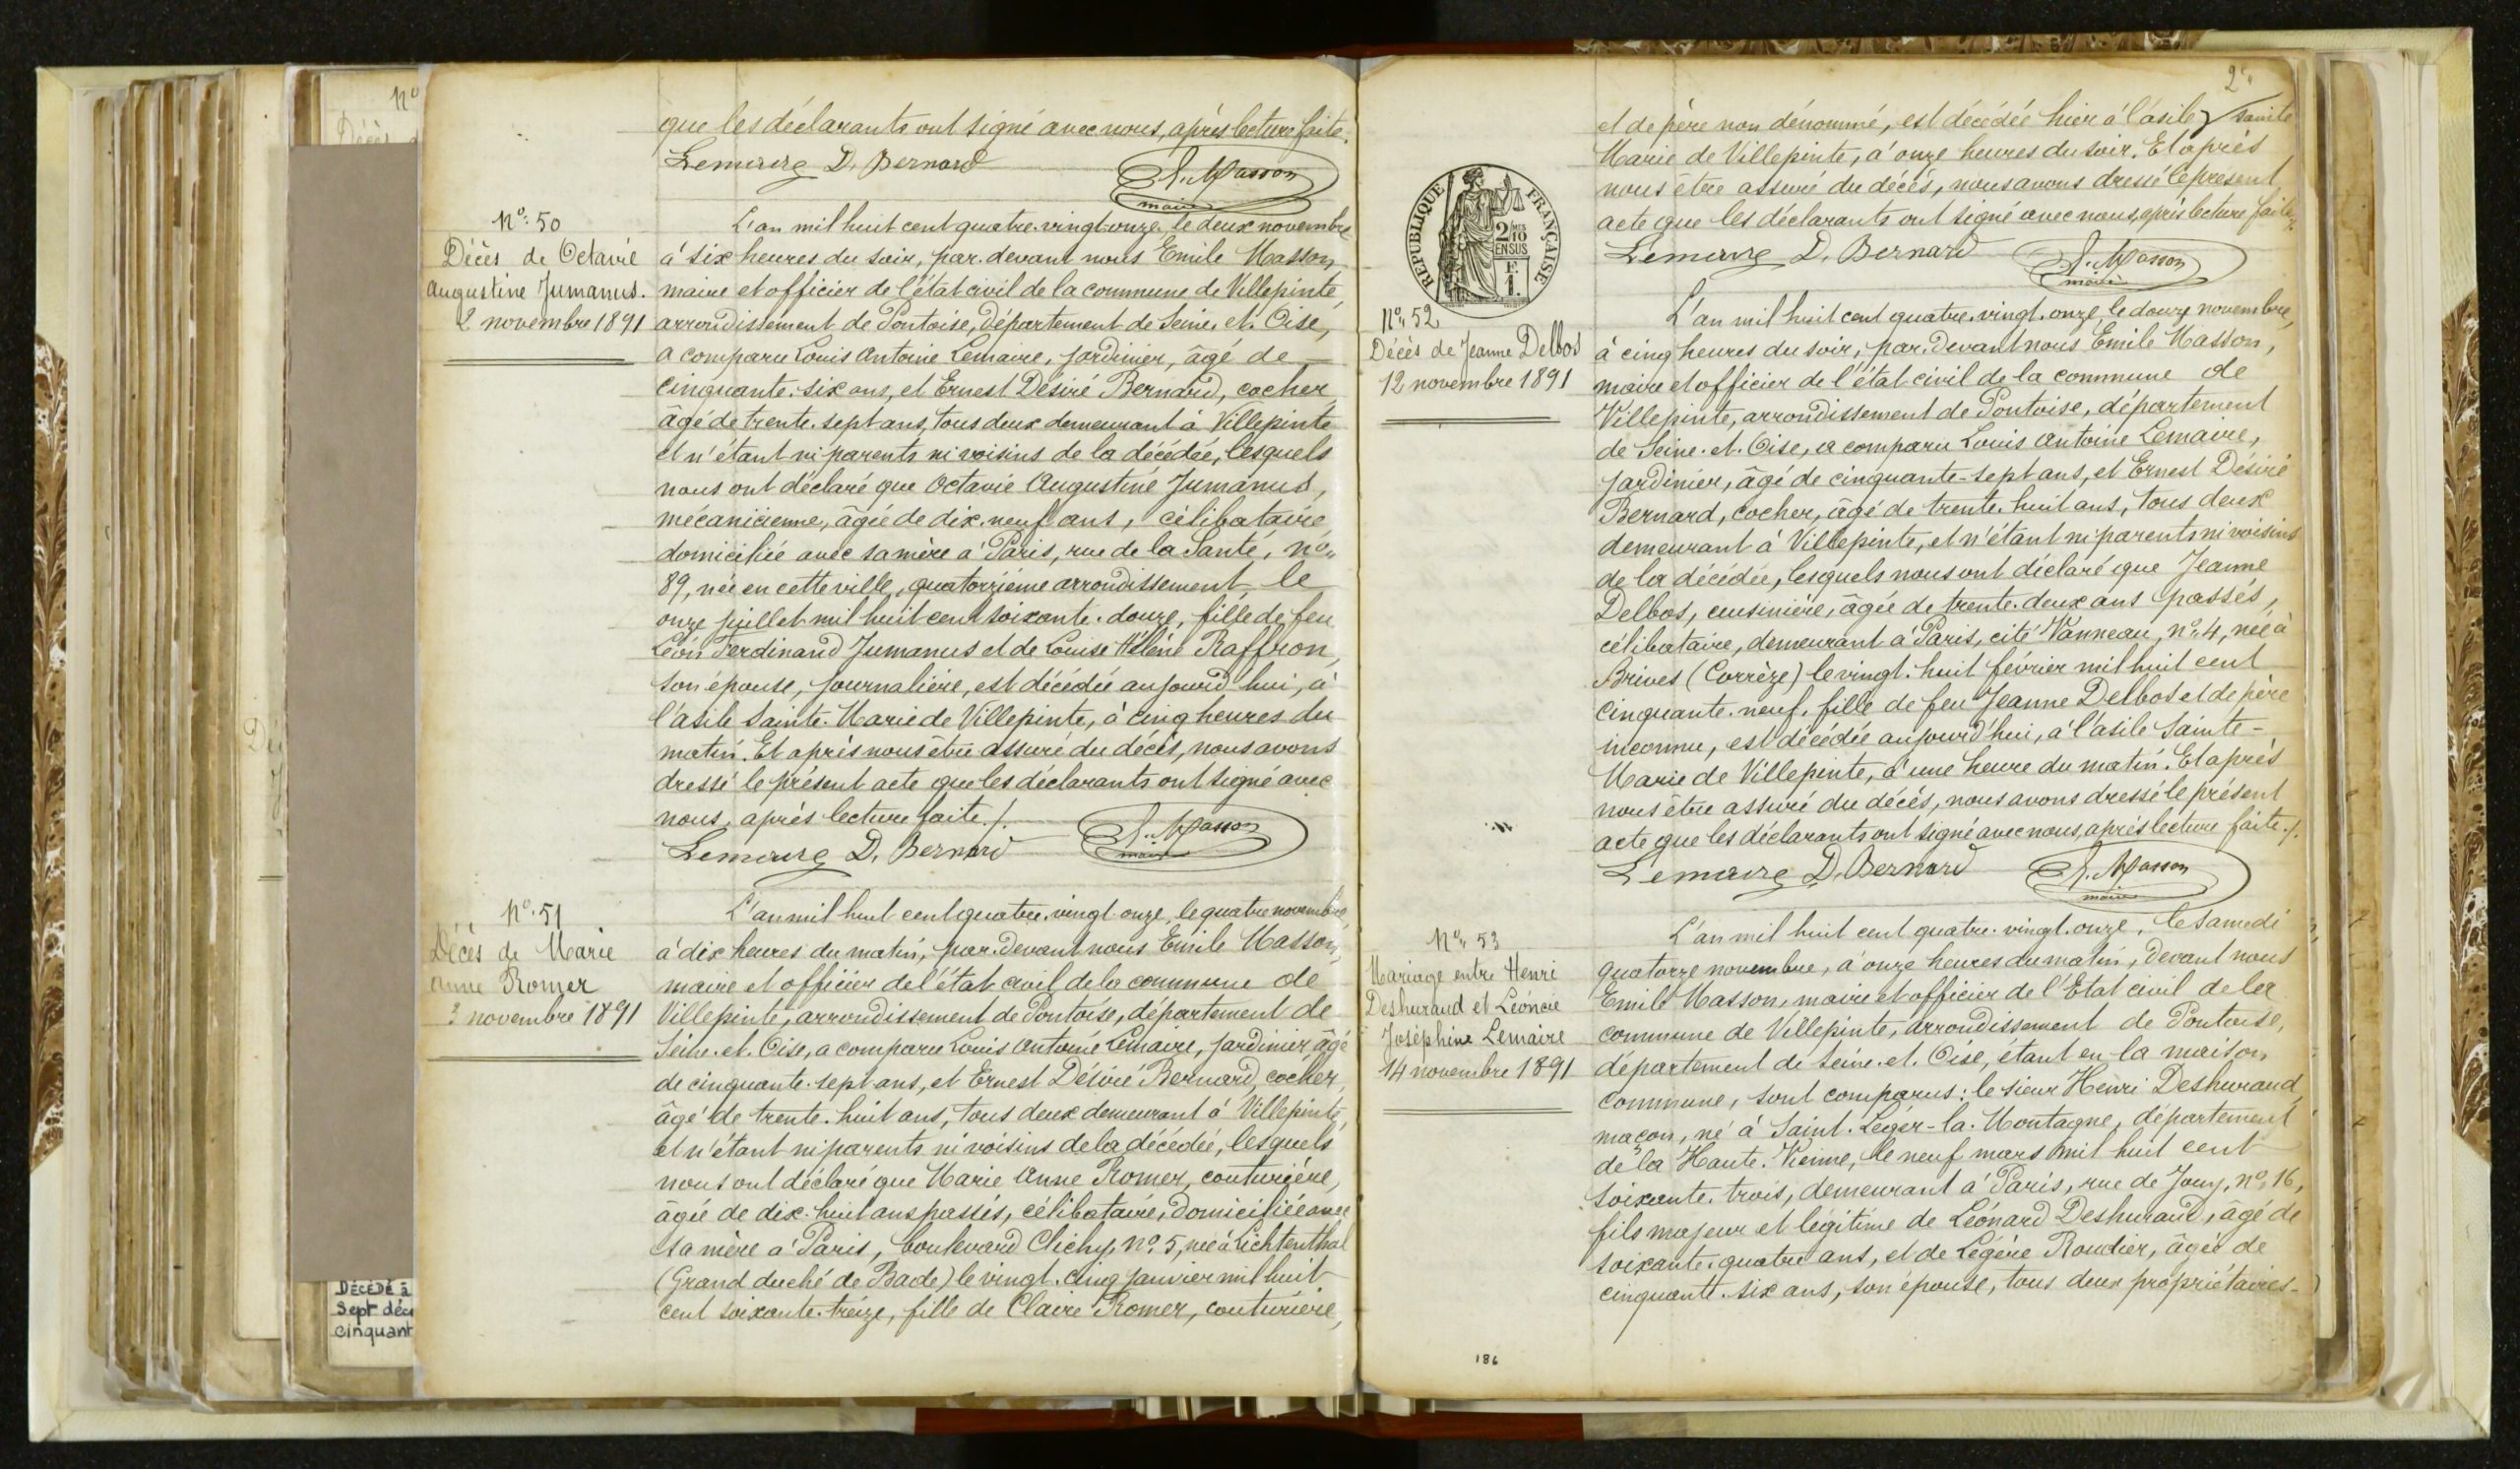 que les déclarants ont signé avec nous, après lecture faite.
Lemaire D. Bernard E. Masson
maire
No. 50
Décès de Octavie
Augustine Jumanus.
2 novembre 1891
L'an mil huit cent quatre-vingt-onze, le deux novembre
à six heures du soir, par-devant nous Emile Masson,
maire et officier de l'état civil de la commune de Villepinte,
arrondissement de Pontoise, département de Seine-et-Oise,
a comparu Louis Antoine Lemaire, jardinier, âgé de
cinquante-six ans, et Ernest Désiré Bernard, cocher,
âgé de trente-sept ans, tous deux demeurant à Villepinte
et n'étant ni parents ni voisins de la décédée, lesquels
nous ont déclaré que Octavie Augustine Jumanus,
mécanicienne, âgée de dix-neuf ans, célibataire,
domiciliée avec sa mère à Paris, rue de la Santé, no.
89, née en cette ville, quatorzième arrondissement, le
onze juillet mil huit cent soixante-douze, fille de feu
Léon Ferdinand Jumanus et de Louise Hélène Raffron,
son épouse, journalière, est décédée aujourd'hui, à
l'asile Sainte-Marie de Villepinte, à cinq heures du
matin. Et après nous être assuré du décès, nous avons
dressé le présent acte que les déclarants ont signé avec
nous, après lecture faite./.
Lemaire D. Bernard E. Masson
maire
No. 51
Décès de Marie
Anne Romer
novembre 1891
L'an mil huit cent quatre-vingt-onze, le quatre novembre
à dix heures du matin, par-devant nous Emile Masson,
maire et officier de l'état civil de la commune de
Villepinte, arrondissement de Pontoise, département de
Seine-et-Oise, a comparu Louis Antoine Lemaire, jardinier âgé
de cinquante-sept ans, et Ernest Désiré Bernard, cocher,
âgé de trente-huit ans, tous deux demeurant à Villepinte,
et n'étant ni parents ni voisins de la décédée, lesquels
nous ont déclaré que Marie Anne Romer, couturière,
âgée de dix-huit ans passés, célibataire, domiciliée avec
sa mère à Paris, boulevard Clichy, no. 5, née à Lichtenthal
(Grand duché de Bade) le vingt-cinq janvier mil huit
cent soixante-treize, fille de Claire Romer, couturière,
et de père non dénommé, est décédée hier à l'asile Sainte
Marie de Villepinte, à onze heures du soir. Et après
nous être assuré du décès, nous avons dressé le présent
acte que les déclarants ont signé avec nous, après lecture faite.
Lemaire D. Bernard E. Masson
maire
RÉPUBLIQUE FRANÇAISE
2/10
EN SUS
F.
1.
No. 52
Décès de Jeanne Delbos
12 novembre 1891
L'an mil huit cent quatre-vingt-onze, le douze novembre,
à cinq heures du soir, par-devant nous Emile Masson,
maire et officier de l'état civil de la commune de
Villepinte, arrondissement de Pontoise, département
de Seine-et-Oise, a comparu Louis Antoine Lemaire,
jardinier, âgé de cinquante-sept ans, et Ernest Désiré
Bernard, cocher, âgé de trente-huit ans, tous deux
demeurant à Villepinte, et n'étant ni parents ni voisins
de la décédée, lesquels nous ont déclaré que Jeanne
Delbos, cuisinière, âgée de trente-deux ans passés,
célibataire, demeurant à Paris, cité Vanneau, no. 4, née à
Brives (Corrèze) le vingt-huit février mil huit cent
cinquante-neuf, fille de feu Jeanne Delbos et de père
inconnu, est décédée aujourd'hui, à l'asile Sainte-
Marie de Villepinte, à une heure du matin. Et après
nous être assuré du décès, nous avons dressé le présent
acte que les déclarants ont signé avec nous, après lecture faite./.
Lemaire D. Bernard E. Masson
maire
No. 53
Mariage entre Henri
Deshuraud et Léonie
Joséphine Lemaire
14 novembre 1891
L'an mil huit cent quatre-vingt-onze, le samedi
quatorze novembre, à onze heures du matin, devant nous
Emile Masson, maire et officier de l'Etat civil de la
commune de Villepinte, arrondissement de Pontoise,
département de Seine-et-Oise, étant en la maison
commune, sont comparus: le sieur Henri Deshuraud,
maçon, né à Saint-Léger-la-Montagne, département
de la Haute-Vienne, le neuf mars mil huit cent
soixante-trois, demeurant à Paris, rue de Jouy, no. 16,
fils majeur et légitime de Léonard Deshuraud, âgé de
soixante-quatre ans, et de Légère Roudier, âgée de
cinquante-six ans, son épouse, tous deux propriétaires
186
DÉCÉDÉ à
Sept déc
cinquant